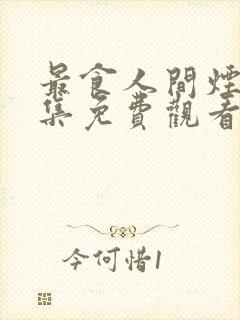 最食人間煙
集免費觀看
今何惜1